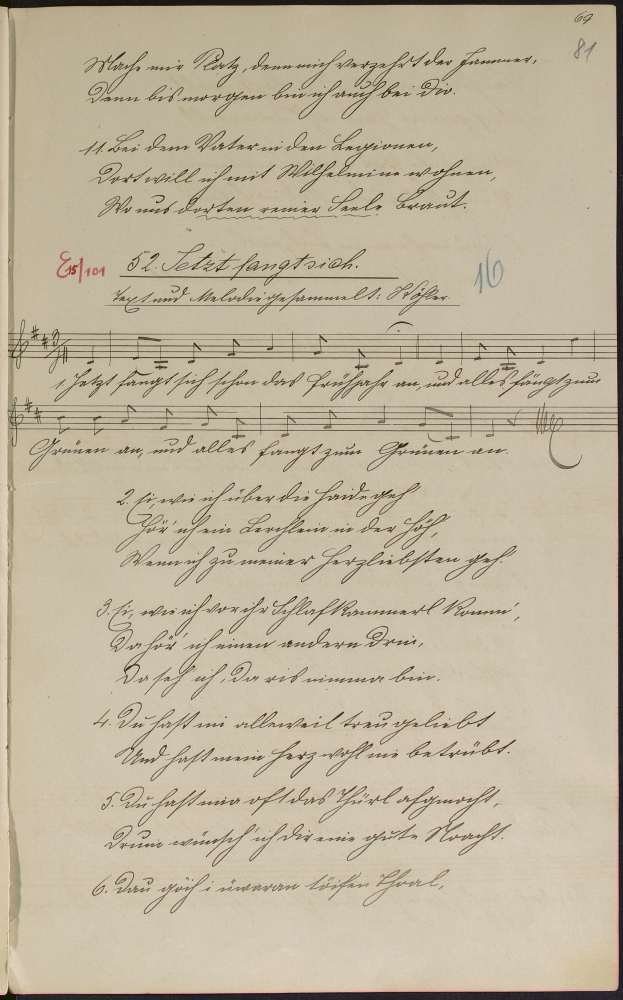 69
81
Mache mir Platz, denn mich verzehrt der Jammer,
Denn bis morgen bin ich auch bei Dir.
11. Bei dem Vater in den Legionen,
Dort will ich mit Wilhelmine wohnen,
Wo uns dorten reiner Seele Braut.
E15/101
52. Jetzt fangt sich.
16
Text und Melodie gesammelt: Köhler
1. Jetzt fangt sich schon das Frühjahr an, und alles fängt zum
Grünen an, und alles fangt zum Grünen an.
2. Ei, wie ich über die Haide geh
Hör' ich ein Lerchlein in der Höh',
Wenn ich zu meiner Herzliebsten geh.
3. Ei, wie ich vor ihr Schlafkammerl komm',
Da hör' ich einen andern drin,
Da seh ich, da i's nimma bin.
4. Du hast mi alleweil treu geliebt
Und hast mein Herz wohl nie betrübt.
5. Du hast mir oft das Thürl afgmocht,
Drum wünsch' ich dir eine gute Noacht.
6. Dau göih i üwaran töifen Thoal,